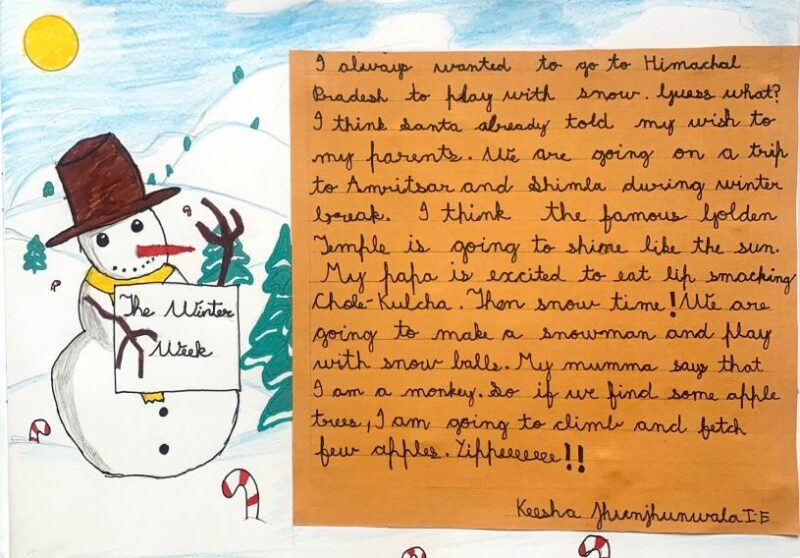 The Winter
Week
I always wanted to go to Himachal
Bradesh to play with snow. Guess what?
I think Santa already told my wish to
my parents. We are going on a trip
to Amritsar and Shimla during winter
break. I think the famous Golden
Temple is going to shine like the sun.
My papa is excited to eat lip smacking
Chole-Kulcha. Then snow time! We are
going to make a snowman and play
with snow balls. My mumma says that
I am a monkey. So if we find some apple
trees, I am going to climb and fetch
few apples. Yippeeeeee!!
Keesha Jhunjhunwala I-E